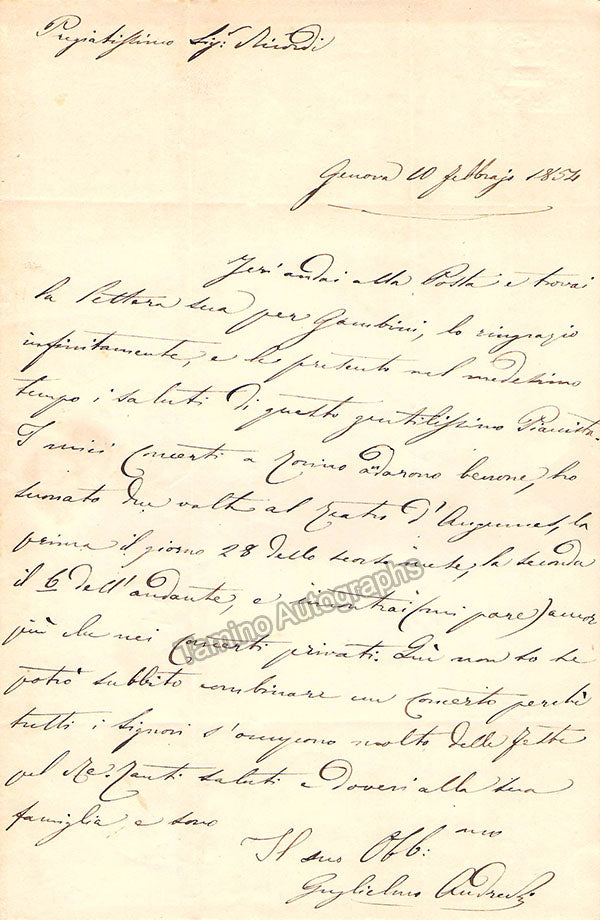 Pregiatissimo Sigr: Ricordi
Genova 10 febbrajo 1854
Jeri andai alla Posta e trovai
la lettera sua per Gambini, lo ringrazio
infinitamente, e le presento nel medesimo
tempo i saluti di questo gentilissimo Pianista.
I miei Concerti a Torino andarono benone, ho
suonato due volte al Teatro d'Angennes, la
prima il giorno 28 dello scorso mese, la seconda
il 6 dell'andante, e incontrai (mi pare) ancor
più che nei Concerti privati. Quì non so se
potrò subbito combinare un Concerto perchè
tutti i Signori s'occupono molto delle feste
pel Re. Tanti saluti e doveri alla sua
famiglia e sono
Il suo Obb:mo
Guglielmo
Tamino Autographs